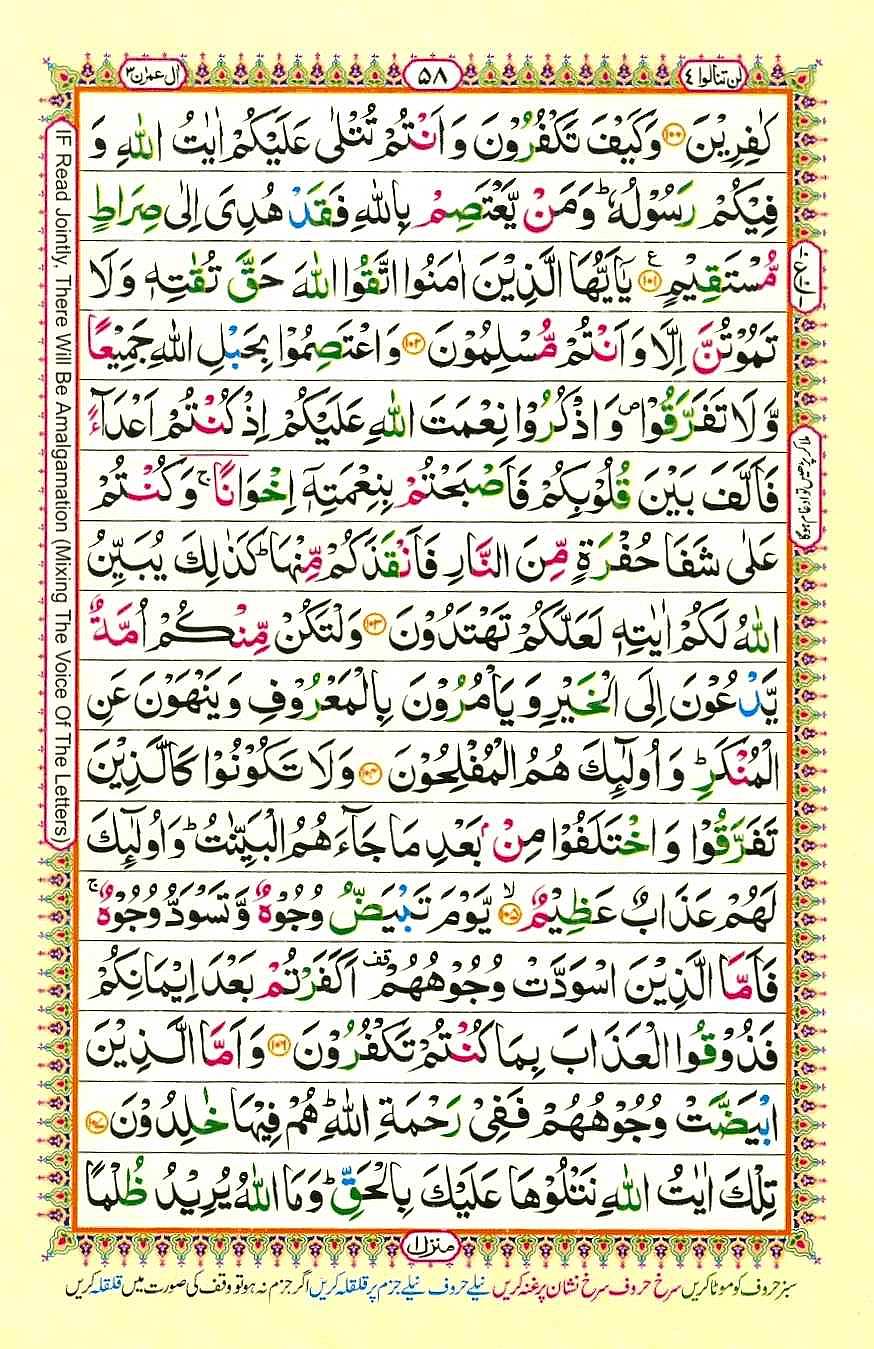 لن تنالوا ٤
٥٨
اٰل عمرٰن ٣
كٰفِرِيْنَ ﴿١٠٠﴾ وَكَيْفَ تَكْفُرُوْنَ وَ اَنْتُمْ تُتْلٰى عَلَيْكُمْ اٰيٰتُ اللّٰهِ وَ
فِيْكُمْ رَسُوْلُهٗ ؕ وَمَنْ يَّعْتَصِمْ بِاللّٰهِ فَقَدْ هُدِىَ اِلٰى صِرَاطٍ
مُّسْتَقِيْمٍ ﴿١٠١﴾ ع يٰۤاَيُّهَا الَّذِيْنَ اٰمَنُوا اتَّقُوا اللّٰهَ حَقَّ تُقٰتِهٖ وَلَا
تَمُوْتُنَّ اِلَّا وَ اَنْتُمْ مُّسْلِمُوْنَ ﴿١٠٢﴾ وَاعْتَصِمُوْا بِحَبْلِ اللّٰهِ جَمِيْعًا
وَّلَا تَفَرَّقُوْا ۪ وَ اذْكُرُوْا نِعْمَتَ اللّٰهِ عَلَيْكُمْ اِذْ كُنْتُمْ اَعْدَآءً
فَاَلَّفَ بَيْنَ قُلُوْبِكُمْ فَاَصْبَحْتُمْ بِنِعْمَتِهٖۤ اِخْوَانًا ۚ وَكُنْتُمْ
عَلٰى شَفَا حُفْرَةٍ مِّنَ النَّارِ فَاَنْقَذَكُمْ مِّنْهَا ؕ كَذٰلِكَ يُبَيِّنُ
اللّٰهُ لَكُمْ اٰيٰتِهٖ لَعَلَّكُمْ تَهْتَدُوْنَ ﴿١٠٣﴾ وَلْتَكُنْ مِّنْكُمْ اُمَّةٌ
يَّدْعُوْنَ اِلَى الْخَيْرِ وَ يَاْمُرُوْنَ بِالْمَعْرُوْفِ وَ يَنْهَوْنَ عَنِ
الْمُنْكَرِ ؕ وَ اُولٰٓئِكَ هُمُ الْمُفْلِحُوْنَ ﴿١٠٤﴾ وَلَا تَكُوْنُوْا كَالَّذِيْنَ
تَفَرَّقُوْا وَ اخْتَلَفُوْا مِنْۢ بَعْدِ مَا جَآءَ هُمُ الْبَيِّنٰتُ ؕ وَ اُولٰٓئِكَ
لَهُمْ عَذَابٌ عَظِيْمٌ ﴿١٠٥﴾ ۙ يَّوْمَ تَبْيَضُّ وُجُوْهٌ وَّ تَسْوَدُّ وُجُوْهٌ ۚ
فَاَمَّا الَّذِيْنَ اسْوَدَّتْ وُجُوْهُهُمْ قف اَكَفَرْتُمْ بَعْدَ اِيْمَانِكُمْ
فَذُوْقُوا الْعَذَابَ بِمَا كُنْتُمْ تَكْفُرُوْنَ ﴿١٠٦﴾ وَ اَمَّا الَّذِيْنَ
ابْيَضَّتْ وُجُوْهُهُمْ فَفِيْ رَحْمَةِ اللّٰهِ ؕ هُمْ فِيْهَا خٰلِدُوْنَ ﴿١٠٧﴾
تِلْكَ اٰيٰتُ اللّٰهِ نَتْلُوْهَا عَلَيْكَ بِالْحَقِّ ؕ وَ مَا اللّٰهُ يُرِيْدُ ظُلْمًا
ملا کر پڑھیں تو ادغام ہوگا
IF Read Jointly, There Will Be Amalgamation (Mixing The Voice Of The Letters)
منزل ١
سبز حروف کو موٹا کریں سرخ حروف سرخ نشان پر غنہ کریں نیلے حروف نیلے جزم پر قلقلہ کریں اگر جزم نہ ہو تو وقف کی صورت میں قلقلہ کریں